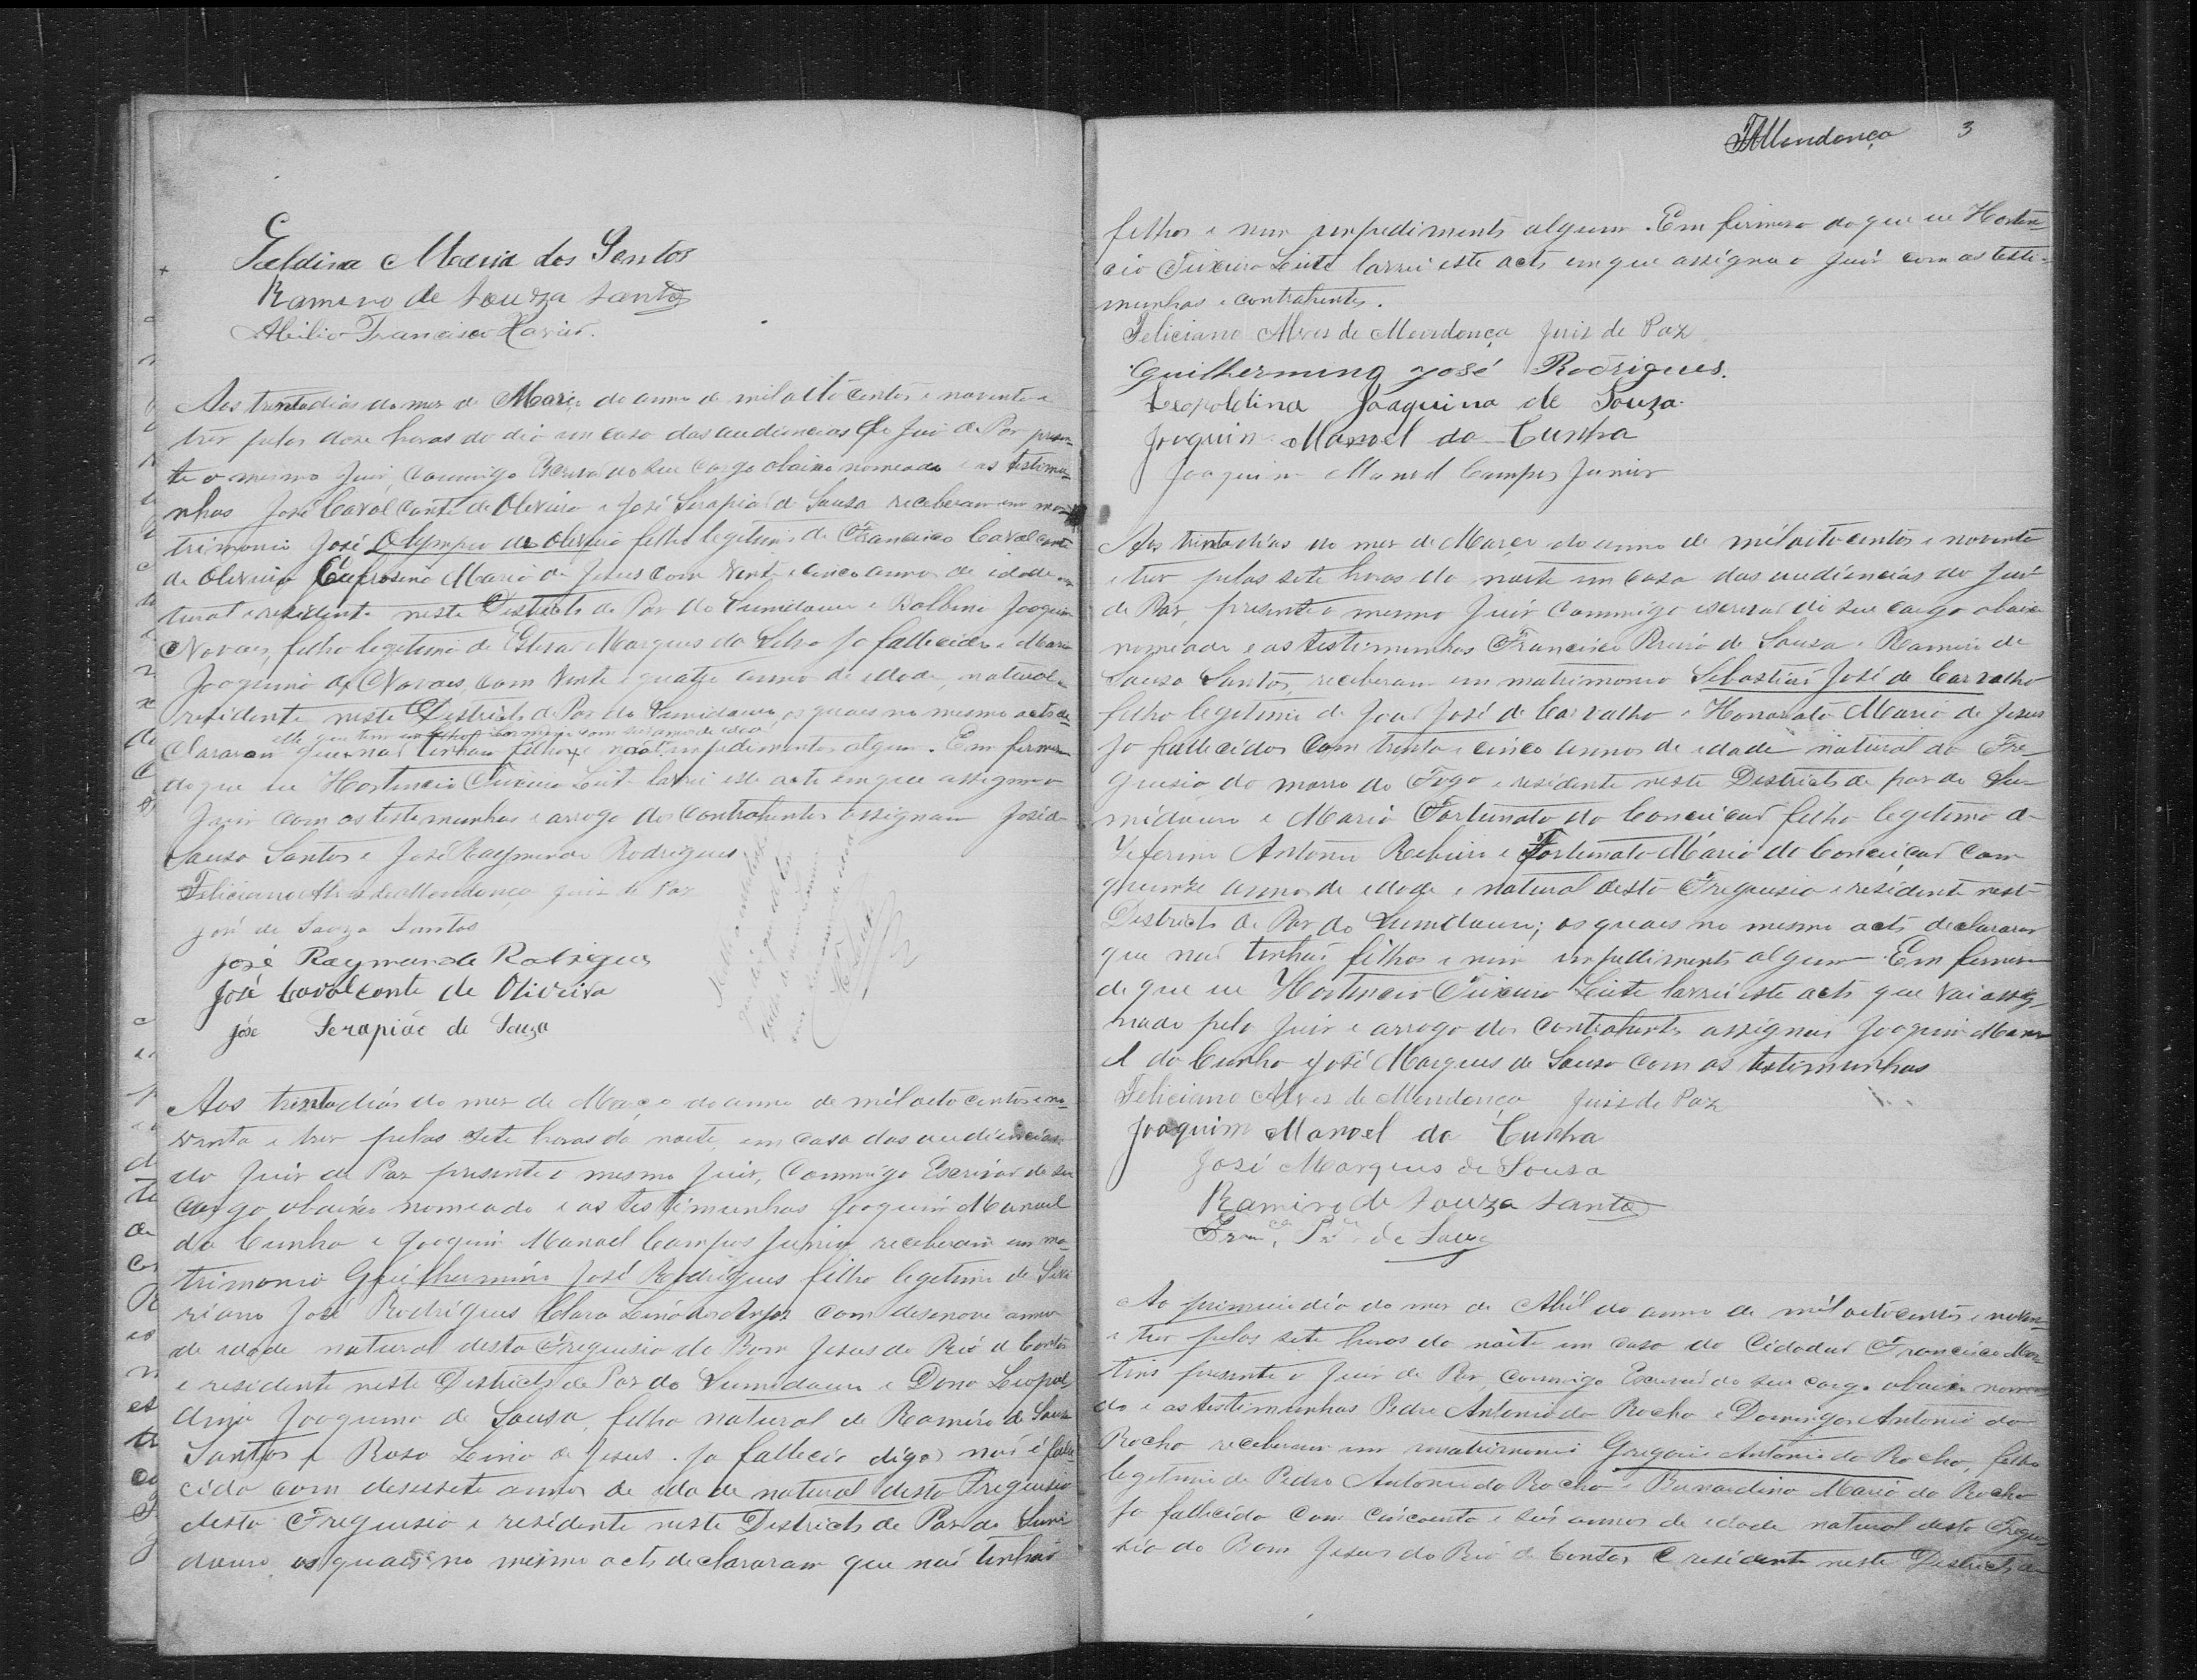 Gueldina Maria dos Santos
Ramiro de Souza Santos
Abilio Francisco Xavier.
Aos trinta dias do mez de Março do anno de mil oito centos e noventa e
trez pelas doze horas do dia em casa das audiencias do Juiz de Paz presen-
te o mesmo Juiz, commigo Escrivão do seu cargo abaixo nomeado e as testimu-
nhas José Cavalcante de Oliveira e José Serapião de Sousa receberam em ma-
trimonio José Olympio de Oliveira filho legitimo de Francisco Cavalcante
de Oliveira Eufrosina Maria de Jesus com vinte e cinco annos de idade
tural e residente neste Districto de Paz do Sumidouro e Balbina Joaquina
Novaes, filha legitima de Marques da Silva ja fallecido e Maria
Joaquina de Novaes, com vinte e quatro annos de idade, natural e
residente neste Districto de Paz do Sumidouro, os quaes no mesmo acto de
elle que tem um filho
clararam que não tinham filhos e não impedimentos algum. Em firmeza
do que eu Hortencio Teixeira Leite lavrei este acto em que assigna o
Juiz com as testimunhas e arrogo dos contrahentes assignam José de
Sousa Santos e José Raymundo Rodrigues
Feliciano Alves de Mendonça Juiz de Paz
José de Souza Santos
José Raymundo Rodrigues
José Cavalcante de Oliveira
José Serapião de Souza
Aos trinta dias do mez de Março do anno de mil oito centos e no-
venta e trez pelas sete horas da noite, em casa das audiencias
do Juiz de Paz presente o mesmo Juiz, Commigo Escrivão do seu
cargo abaixo nomeado e as testimunhas Joaquim Manoel
da Cunha e Joaquim Manoel Campos Junior receberam em ma-
trimonio Guilhermino José Rodrigues filho legitimo de
riano José Rodrigues Clara dos Anjos com desenove annos
de idade natural desta Freguesia do Bom Jesus do Rio de Contas
e residente neste Districto de Paz do Sumidouro e Dona Leopol
dina Joaquina de Sousa, filha natural de Ramiro de Sousa
Santos e Rosa de Jesus. ja fallecia digo não é falle
cida com desesete annos de idade natural desta Freguesia
desta Freguesia e residente neste Districto de Paz do Sumi
douro os quaes no mesmo acto declararam que não tinham
FAMendonça 3
filhos e nem impedimento algum. Em firmeza do que eu Horten-
cio Teixeira Leite lavrei este acto em que assigna o Juiz com as teste-
munhas e contrahentes.
Feliciano Alves de Mendonça Juiz de Paz
Guilhermino José Rodrigues.
Leopoldina Joaquina de Souza.
Joaquim Manoel da Cunha
Joaquim Manoel Campos Junior
Aos trinta dias do mez de Março do anno de mil oito centos e noventa
e trez pelas sete horas da noite em casa das audiencias do Juiz
de Paz, presente o mesmo Juiz Commigo escrivão do seu cargo abaixo
nomeado e as testimunhas Francisco Pereira de Souza e Ramiro de
Sousa Santos, receberam em matrimonio Sebastião José de Carvalho
filho legitimo de João José de Carvalho e Honorata Maria de Jesus
ja fallecidos com trinta e cinco annos de idade natural da Fre-
guesia do morro do Fogo e residente neste Districto de paz do Su-
midouro e Maria Fortunata da Conceição filha legitima de
Zeferino Antonio Ribeiro e Fortunata Maria da Conceição com
quinze annos de idade e natural desta Freguesia e residente neste
Districto de Paz do Sumidouro; os quaes no mesmo acto declararam
que não tinhão filhos e nem impedimento algum. Em firmeza
do que eu Hortencio Teixeira Leite lavrei este acto que vai assig-
nado pelo Juiz e arrogo dos contrahentes assignão Joaquim Mano
el da Cunha e José Marques de Sousa com as testimunhas
Feliciano Alves de Mendonça Juiz de Paz
Joaquim Manoel da Cunha
José Marques de Sousa
Ramiro de Souza Santos
Franco Pra de Souza
Ao primeiro dia do mez de Abril do anno de mil oito centos e noventa
e trez pelas sete horas da noite em casa do Cidadão Francisco Mar
tins presente o Juiz de Paz, commigo Escrivão do seu cargo abaixo nomea
do e as testimunhas Pedro Antonio da Rocha e Domingos Antonio da
Rocha receberam em matrimonio Gregorio Antonio da Rocha, filho
legitimo de Pedro Antonio da Rocha e Bernardina Maria da Rocha
ja fallecida com cincoenta e seis annos de idade natural desta Fregue
sia do Bom Jesus do Rio de Contas e residente neste Districto de